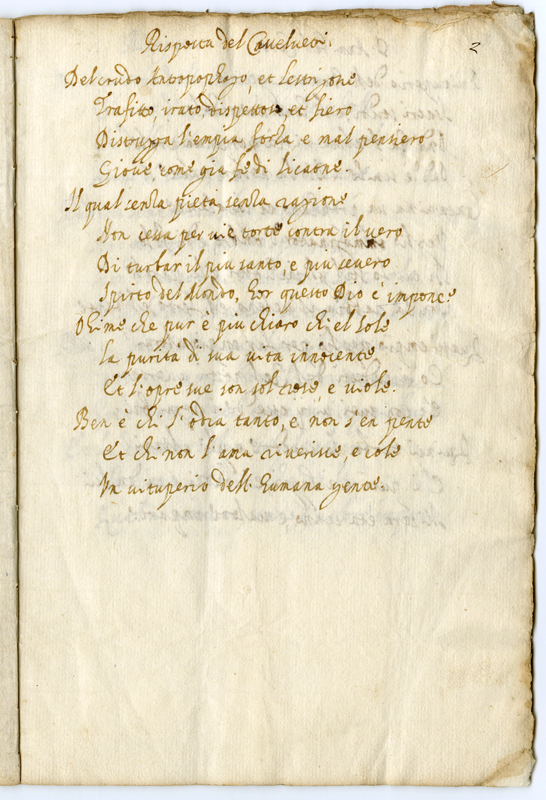 Risposta del Cavelieri.
2
Del crudo Antropophago, et lestrigone
Trafitto, irato, dispettoso, et fiero
Distrugga l'empia forza e mal pensiero
Giove come già fe di licaone.
Il qual senza pietà, senza ragione
Non cessa per vie torte contra il vero
Di turbar il piu santo, e piu severo
Spirto del Mondo, hor questo Dio c'impone
Ohime che pur è piu chiaro ch'el sole
la purità di sua vita innocente
Et l'opre sue son sol rose, e viole.
Ben è chi l'odia tanto, e non s'en pente
Et chi non l'ama riverisce, e cole
Un vituperio dell'humana gente